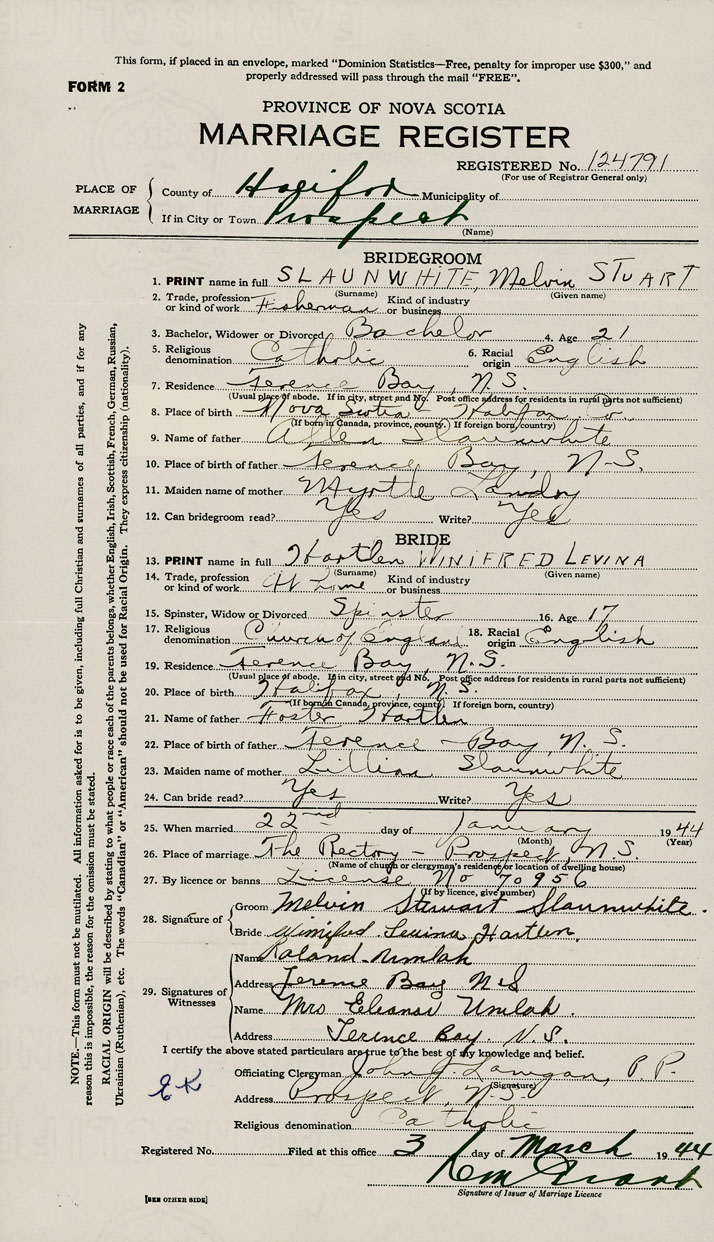 This form, if placed in an envelope, marked “Dominion Statistics—Free, penalty for improper use $300,” and
properly addressed will pass through the mail “FREE”.
FORM 2
PROVINCE OF NOVA SCOTIA
MARRIAGE REGISTER
REGISTERED No. 124791
(For use of Registrar General only)
PLACE OF MARRIAGE
County of Halifax Municipality of
If in City or Town Prospect
(Name)
BRIDEGROOM
1. PRINT name in full SLAUNWHITE, Melvin STUART
(Surname) (Given name)
2. Trade, profession or kind of work Fisherman Kind of industry or business
3. Bachelor, Widower or Divorced Bachelor 4. Age 21
5. Religious denomination Catholic 6. Racial origin English
7. Residence Terence Bay, N.S.
(Usual place of abode. If in city, street and No. Post office address for residents in rural parts not sufficient)
8. Place of birth Nova Scotia - Halifax Co.
(If born in Canada, province, county. If foreign born, country)
9. Name of father Allen Slaunwhite
10. Place of birth of father Terence Bay, N-S.
11. Maiden name of mother Myrtle Landry
12. Can bridegroom read? Yes Write? Yes
BRIDE
13. PRINT name in full Hartlen WINIFRED LEVINA
(Surname) (Given name)
14. Trade, profession or kind of work At home Kind of industry or business
15. Spinster, Widow or Divorced Spinster 16. Age 17
17. Religious denomination Church of England 18. Racial origin English
19. Residence Terence Bay, N.S.
(Usual place of abode. If in city, street and No. Post office address for residents in rural parts not sufficient)
20. Place of birth Halifax, N.S.
(If born in Canada, province, county. If foreign born, country)
21. Name of father Foster Hartlen
22. Place of birth of father Terence - Bay, N.S.
23. Maiden name of mother Lillian Slaunwhite
24. Can bride read? Yes Write? Yes
25. When married 22nd day of January 1944
(Month) (Year)
26. Place of marriage The Rectory - Prospect, N.S.
(Name of church or clergyman's residence or location of dwelling house)
27. By licence or banns License No 70956
(If by licence, give number)
28. Signature of
Groom Melvin Stewart Slaunwhite.
Bride Winifred Levina Hartlen.
29. Signatures of Witnesses
Name Roland Umlah
Address Terence Bay NS
Name Mrs Eleanor Umlah.
Address Terence Bay. N.S.
I certify the above stated particulars are true to the best of my knowledge and belief.
Officiating Clergyman John J. Lanigan, P.P.
(Signature)
Address Prospect, N.S.
Religious denomination Catholic
EK
Registered No. Filed at this office 3 day of March 1944
Signature of Issuer of Marriage Licence
[SEE OTHER SIDE]
NOTE.—This form must not be mutilated. All information asked for is to be given, including full Christian and surnames of all parties, and if for any
reason this is impossible, the reason for the omission must be stated.
RACIAL ORIGIN will be described by stating to what people or race each of the parents belongs, whether English, Irish, Scottish, French, German, Russian,
Ukrainian (Ruthenian), etc. The words “Canadian” or “American” should not be used for Racial Origin. They express citizenship (nationality).